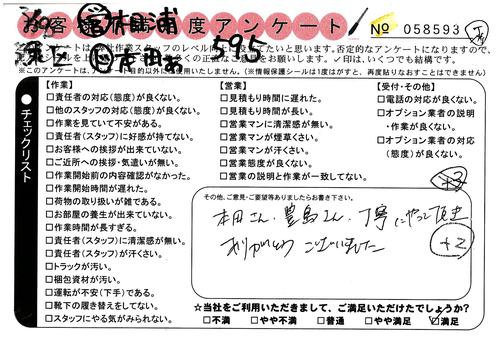 お客様満足度アンケート № 058593
595
※このアンケートは、アンケート目的以外には使用いたしません。(情報保護シールは1度がすと、再度貼りなおすことはできません)
チェックリスト
【作業】
□責任者の対応(態度)が良くない。
□他のスタッフの対応(態度)が良くない。
□作業を見ていて不安がある。
□責任者(スタッフ)に好感が持てない。
□お客様への挨拶が出来ていない。
□ご近所への挨拶・気遣いが無い。
□作業開始前の内容確認がなかった。
□作業開始時間が遅れた。
□荷物の取り扱いが雑である。
□お部屋の養生が出来ていない。
□作業時間が長すぎる。
□責任者(スタッフ)に清潔感が無い。
□責任者(スタッフ)が汗くさい。
□トラックが汚い。
□梱包資材が汚い。
□運転が不安(下手)である。
□靴下の履き替えをしてない。
□スタッフにやる気がみられない。
【営業】
□見積もり時間に遅れた。
□見積もり時間が長い。
□営業マンに清潔感が無い。
□営業マンが煙草くさい。
□営業マンが汗くさい。
□営業態度が良くない。
□営業の説明と作業が一致してない。
【受付・その他】
□電話の対応が良くない。
□オプション業者の説明・作業が良くない。
□オプション業者の対応(態度)が良くない。
その他、ご意見・ご要望等ありましたらお書き下さい。
本田さん、豊島さん、丁寧にやって頂き
ありがとうございました
+2
☆当社をご利用いただきまして、ご満足いただけたでしょうか?
□不満 □やや不満 □普通 □やや満足 ☑満足